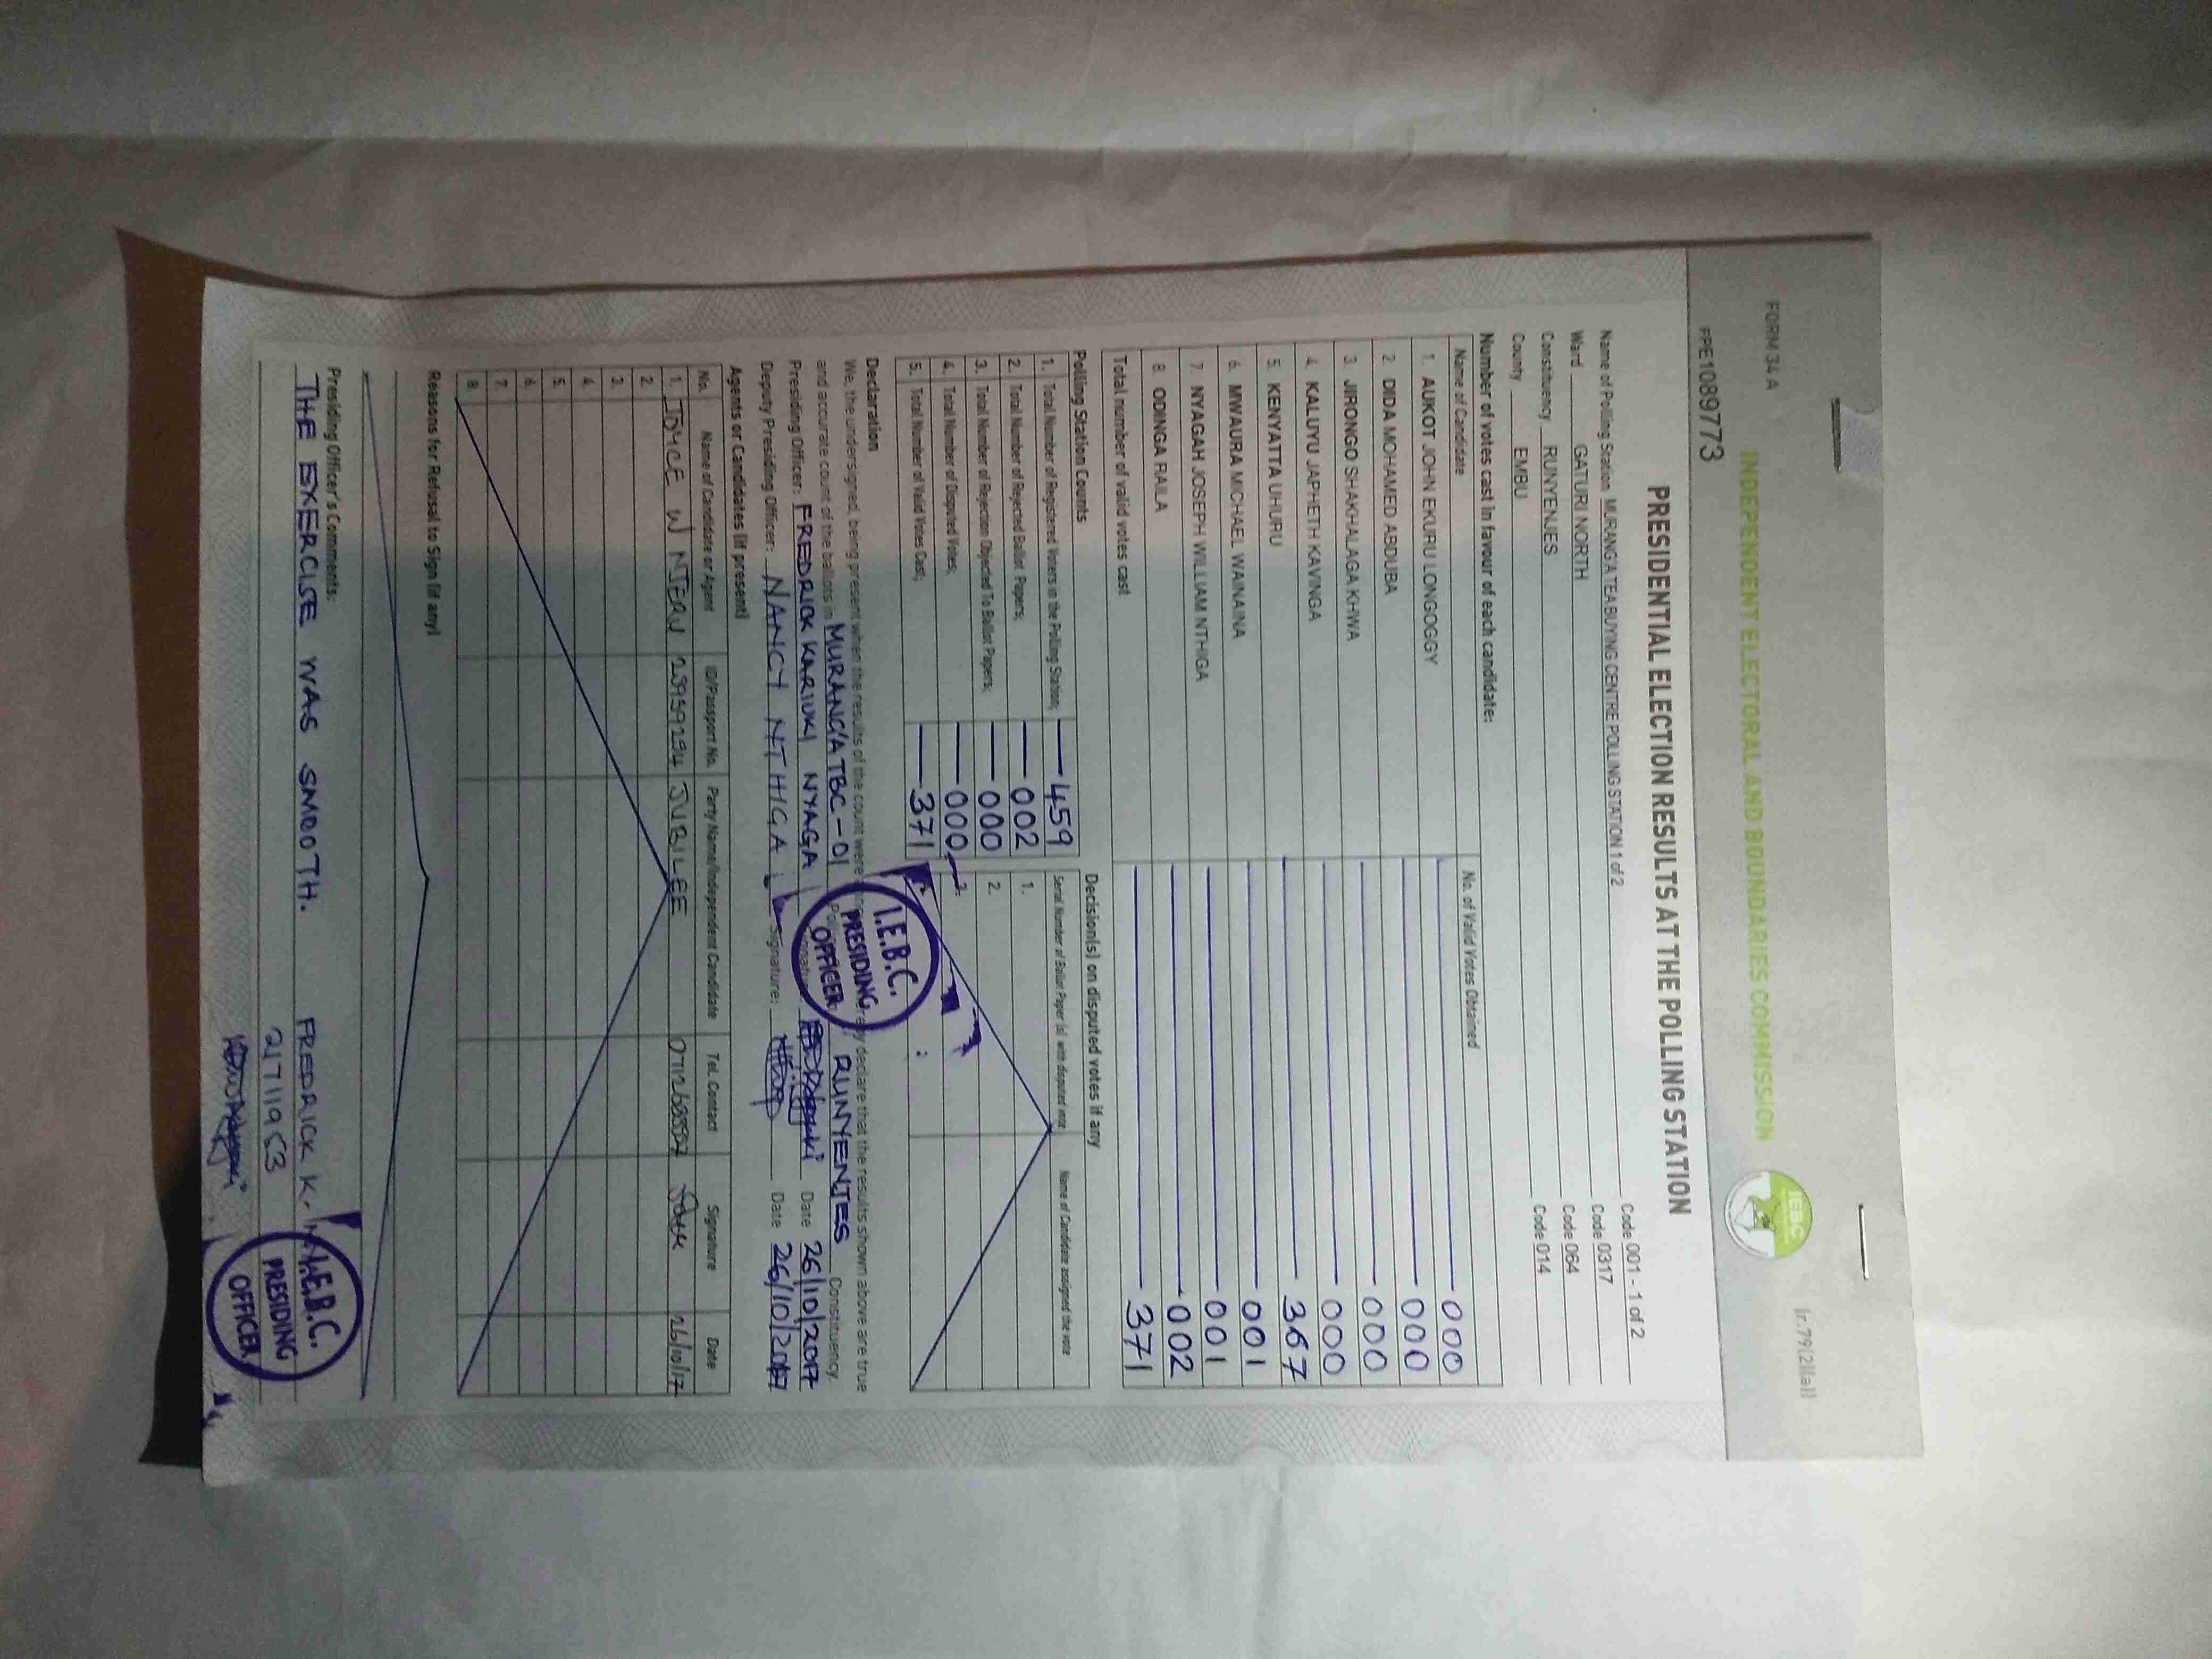 FORM 34 A
(r.79(2)(a))
INDEPENDENT ELECTORAL AND BOUNDARIES COMMISSION
IEBC
PPE1089773
PRESIDENTIAL ELECTION RESULTS AT THE POLLING STATION
Name of Polling Station MURANG'A TEA BUYING CENTRE POLLING STATION 1 of 2 Code 001 - 1 of 2
Ward GATURI NORTH Code 0317
Constituency RUNYENJES Code 064
County EMBU Code 014
Number of votes cast in favour of each candidate:
Name of Candidate No. of Valid Votes Obtained
1. AUKOT JOHN EKURU LONGOGGY 000
2. DIDA MOHAMED ABDUBA 000
3. JIRONGO SHAKHALAGA KHWA 000
4. KALUYU JAPHETH KAVINGA 000
5. KENYATTA UHURU 367
6. MWAURA MICHAEL WAINAINA 001
7. NYAGAH JOSEPH WILLIAM NTHIGA 001
8. ODINGA RAILA 002
Total number of valid votes cast 371
Polling Station Counts
1. Total Number of Registered Voters in the Polling Station; 459
2. Total Number of Rejected Ballot Papers; 002
3. Total Number of Rejection Objected To Ballot Papers; 000
4. Total Number of Disputed Votes; 000
5. Total Number of Valid Votes Cast; 371
Decision(s) on disputed votes if any
Serial Number of Ballot Paper (s) with disputed vote Name of Candidate assigned the vote
1.
2.
3.
Declaration
We, the undersigned, being present when the results of the count were declare that the results shown above are true
and accurate count of the ballots in MURANG'A TBC - 01 RUNYENJES Constituency.
Presiding Officer: FREDRICK KARIUKI NYAGA Date 26/10/2017
Deputy Presiding Officer: NANCY NTHIGA Signature: Date 26/10/2017
I.E.B.C.
PRESIDING
OFFICER
Agents or Candidates (if present)
No. Name of Candidate or Agent ID/Passport No. Party Name/Independent Candidate Tel. Contact Signature Date
1. JOYCE W NJERU 23939294 JUBILEE 26/10/17
2.
3.
4.
5.
6.
7.
8.
Reasons for Refusal to Sign (if any)
Presiding Officer's Comments:
THE EXERCISE WAS SMOOTH. FREDRICK K.
I.E.B.C.
PRESIDING
OFFICER